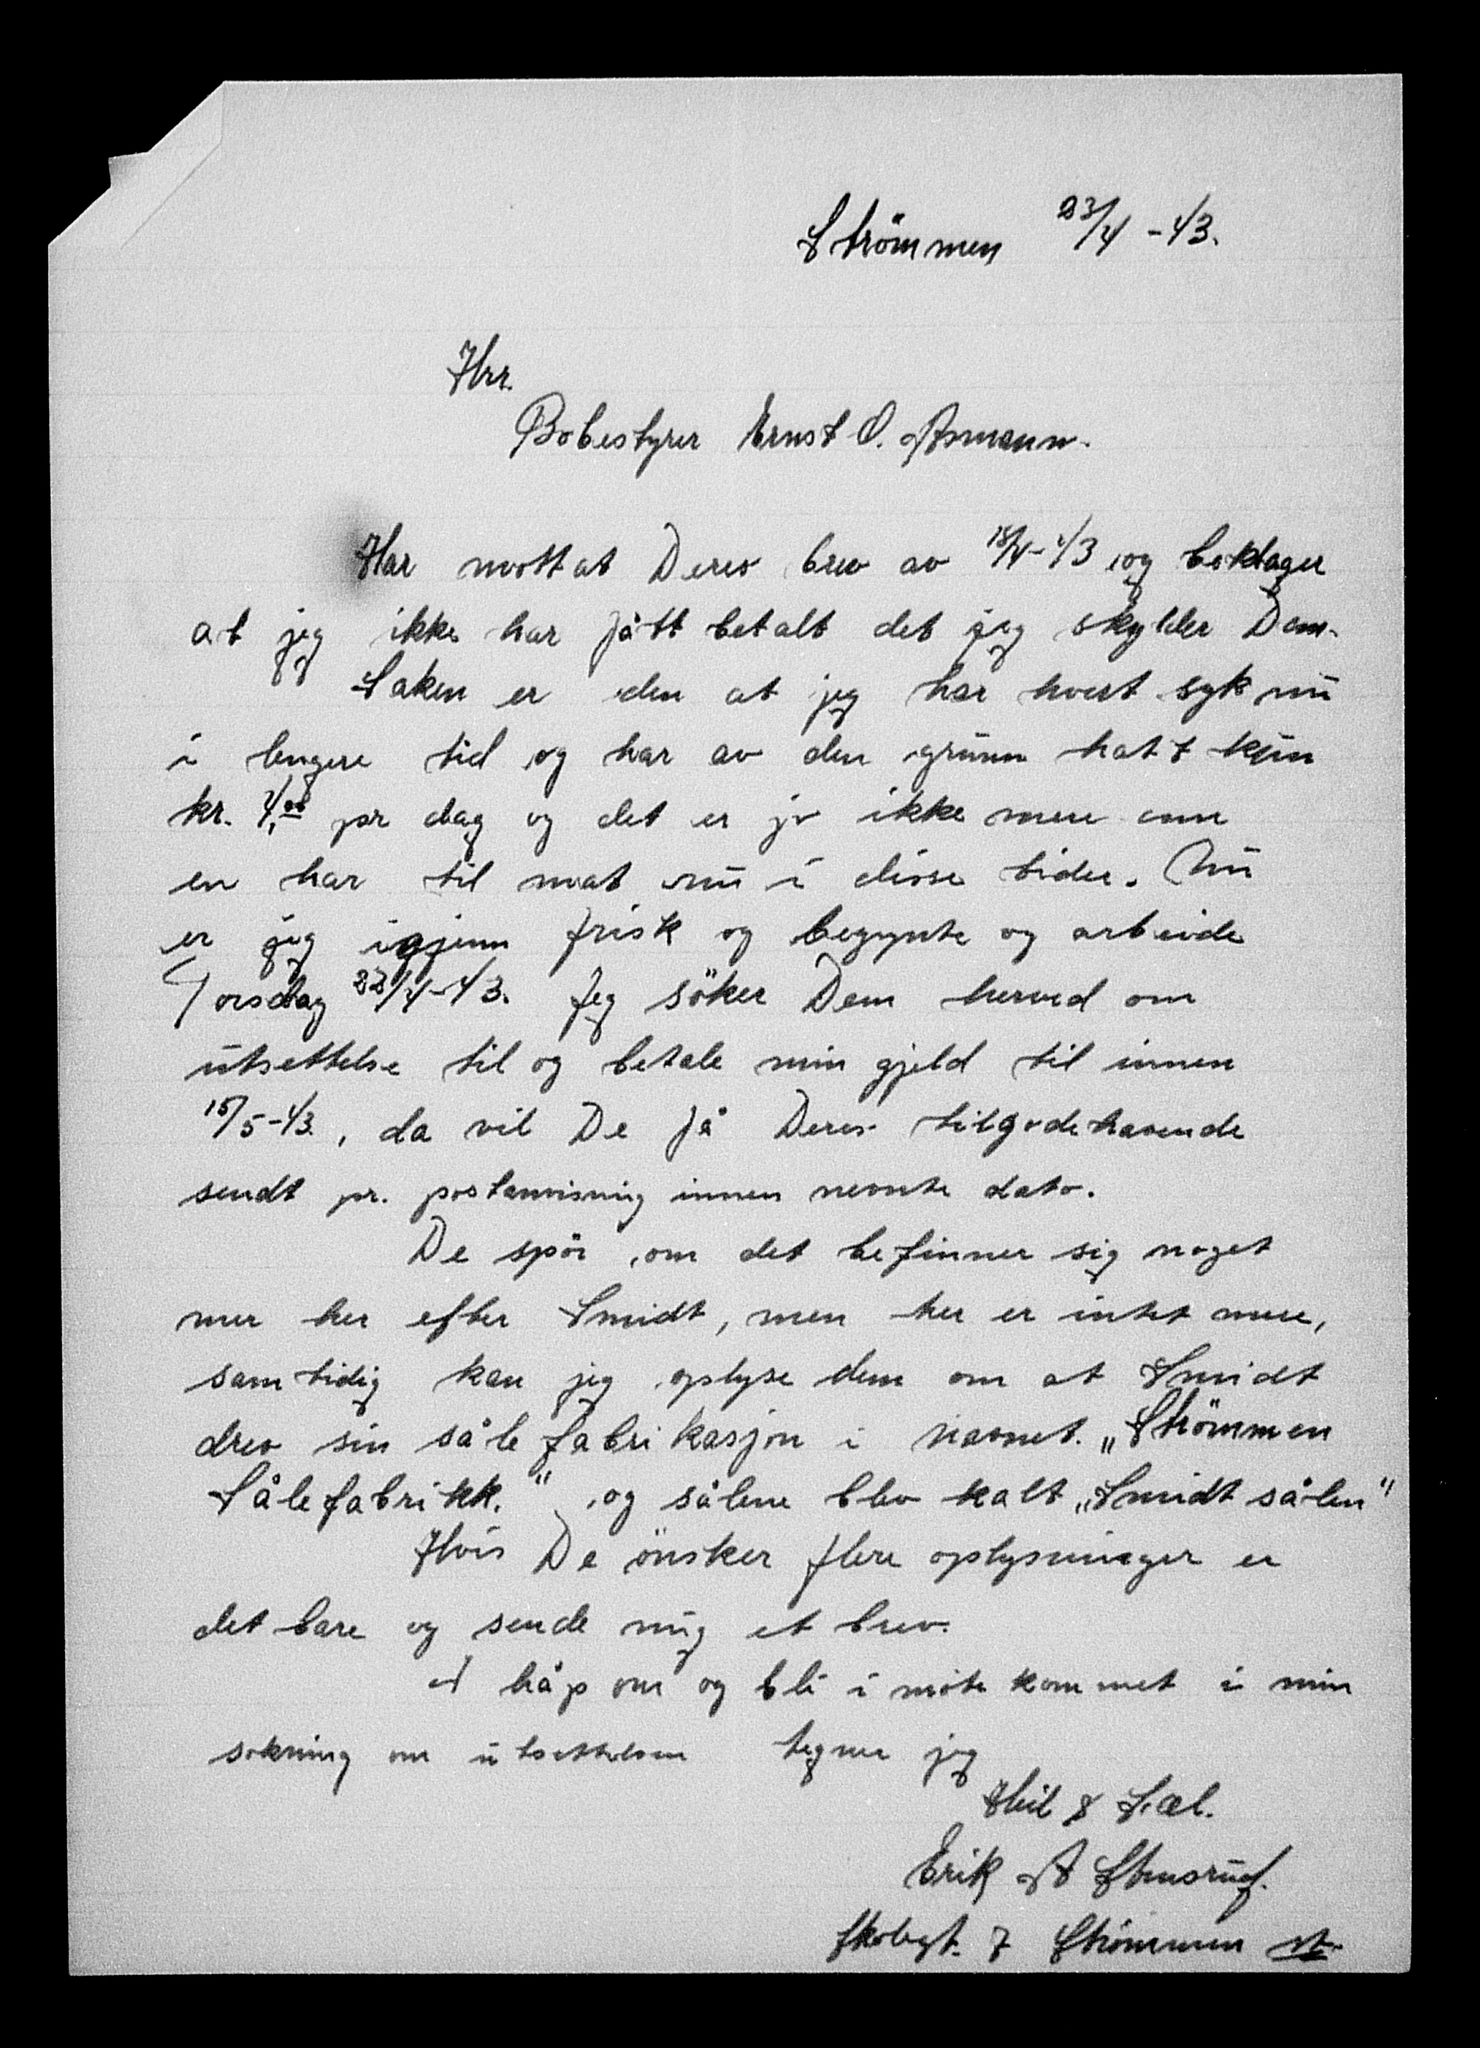 Strömmen 23/4 - 43.
Hrr.
Bobestyrer Ernst O. Asmann.
Har mottat Deres brev av 18/4-43 og beklager
at jeg ikke har fått betalt det jeg skylder Dem.
Saken er den at jeg har hvert syk nū
i lengere tid og har av den grūnn hatt kūn
kr. 4,00 pr dag og det er jo ikke mere enn
en har til mat nū i disse tider. Nū
er jeg igjenn frisk og begynte og arbeide
Torsdag 22/4-43. Jeg söker Dem herved om
ūtsettelse til og betale min gjeld til innen
15/5-43., da vil De få Deres tilgodehavende
sendt pr. postanvisning innen nevnte dato.
De spör om det befinner sig noget
mer her efter Smidt, men her er intet mere,
samtidig kan jeg oplyse dem om at Smidt
drev sin sålefabrikasjon i navnet. „Strömmen
Sålefabrikk.“ og sålene blev kalt „Smidt sålen“
Hvis De önsker flere oplysninger er
det bare og sende mig et brev.
I håp om og bli i möte kommet i min
sökning om ūtsettelsen tegner jeg
Heil & Sæl.
Erik A Stensrud.
Skolegt. 7 Strömmen st.